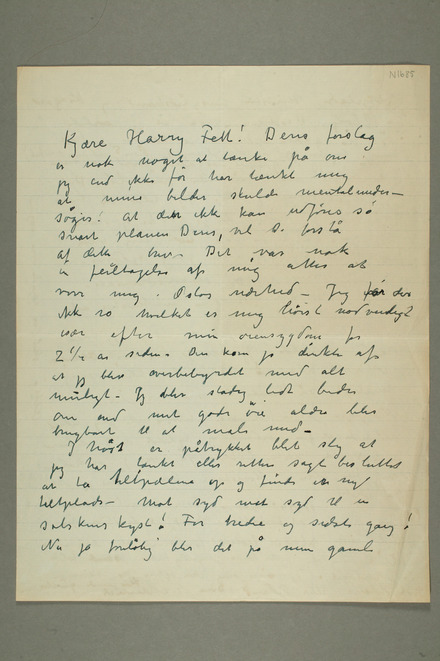 N1685
Kjære Harry Fett! Deres forslag
er nok noget at tænke på om
jeg end ikke før har tænkt mig
at mine billeder skulde mentalunder-
søges! At det ikke kan udføres så
snart planen Deres, vil De forstå
af dette brev – Det var nok
en feiltagelse af mig atter at
vove mig Oslos nærhed – Jeg får der
ikke ro hvilket er mig høist nødvendigt
især efter min øiensygdom for
2 1/2 år siden – Den kom jo direkte af
at jeg blev overbebyrdet med alt
muligt – Jeg blev stadig
om end mit gode øie aldrig blev
brugbart til at male med –
I høst er påtrykket blit slig at
jeg har tænkt eller rettere sagt besluttet
at ta teltpælene op og finde en ny
teltplads – Mot syd mot syd til en
solskinskyst! For tredie og sidste gang!
Nu jo foreløbig blev det på min gamle